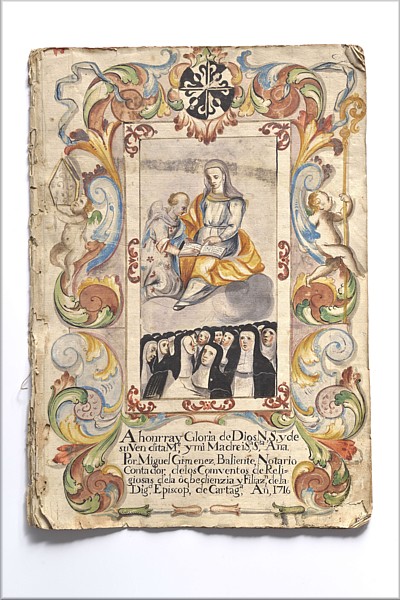 A honrra y Gloria de Dios N. S. y de
su Vendita Mᵉ, y mi Madre i Sᵃ Sᵗᵃ Ana.
Por Miguel Gimenez, Baliente, Notario
Contador, de los Comventos de Reli-
giosas de la obechienzia y Filiazⁿ de la
Digᵈ Episcop, de Cartagᵃ Añ, 1716